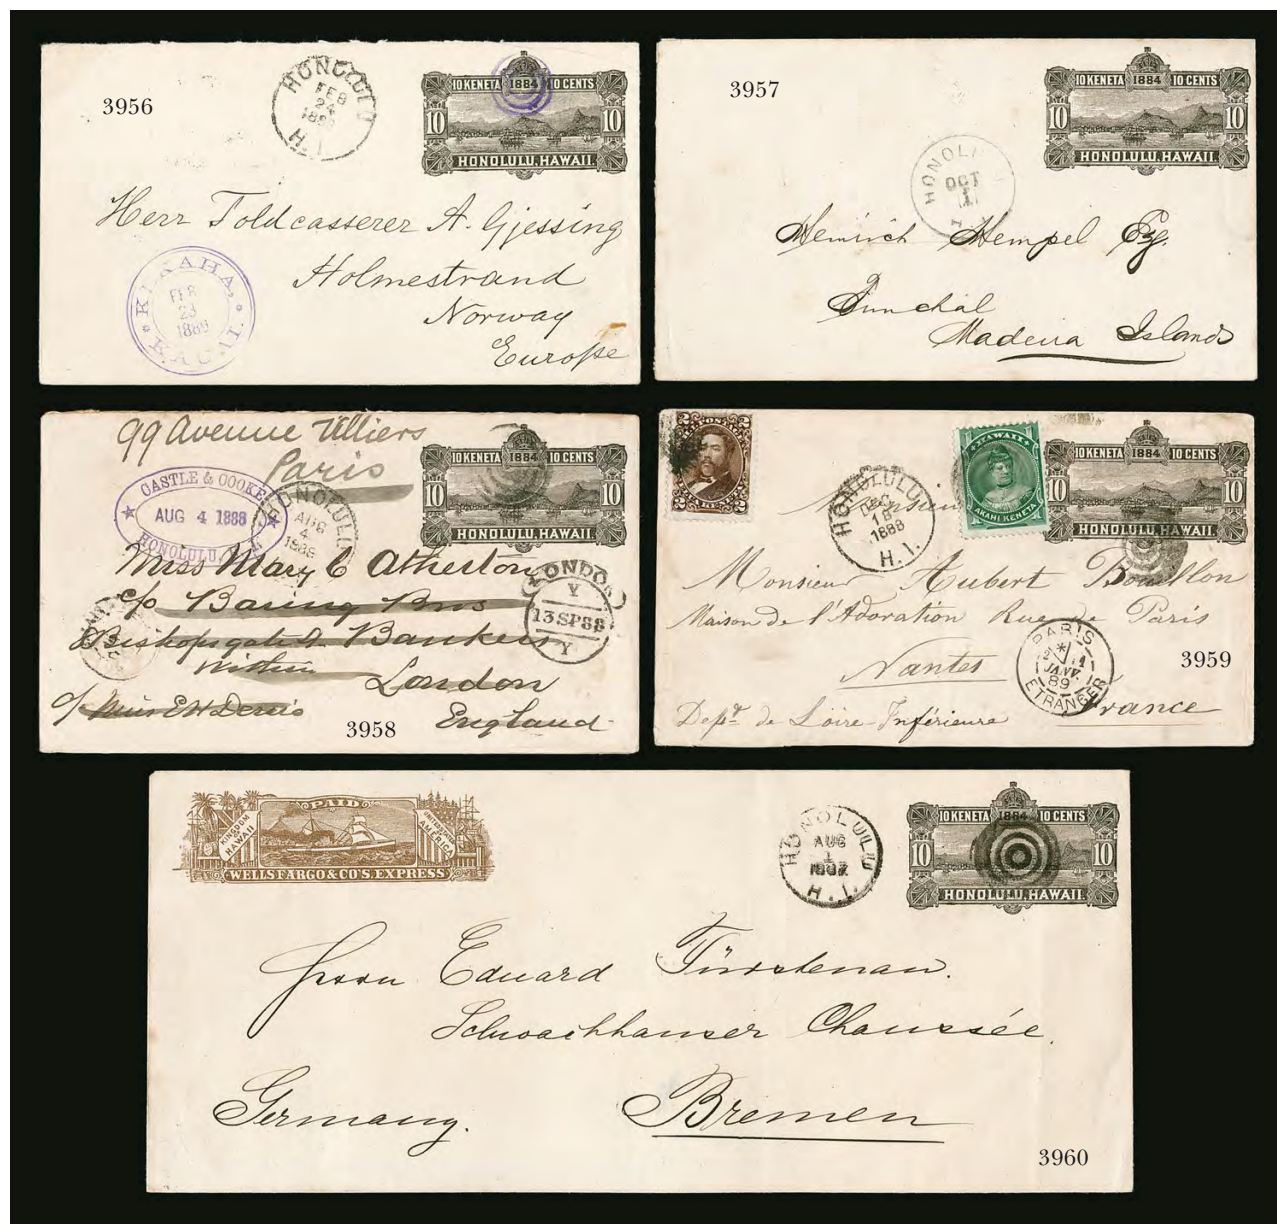 3956
HONOLULU
FEB
24
H.I.
10 KENETA 1884 10 CENTS
10 10
HONOLULU, HAWAII.
Herr Toldcasserer A. Gjessing
Holmestrand
Norway
Europe
KEKAHA,
FEB
23
1889
KAUAI.
3957
10 KENETA 1884 10 CENTS
10 10
HONOLULU, HAWAII.
OCT
1
Heinrich Hempel Esq.
Funchal
Madeira Islands
99 Avenue Villiers
Paris
CASTLE & COOKE
AUG 4 1888
HONOLULU
HONOLULU
AUG
4
1888
10 KENETA 1884 10 CENTS
10 10
HONOLULU, HAWAII.
Miss Mary C Atherton
c/o Baring Bros
Bishopsgate St Bankers
Within London
c/o Miss E W Dennis
England
LONDON
Y
13 SP 88
Y
3958
HAWAII
1
AKAHI KENETA
HONOLULU
DEC
1888
H.I.
10 KENETA 1884 10 CENTS
10 10
HONOLULU, HAWAII.
Monsieur
Monsieur Aubert Bouillon
Maison de l'Adoration Rue de Paris
Nantes
Dept de Loire-Inférieure
France
PARIS
JANV
89
ETRANGER
3959
PAID
KINGDOM OF HAWAII
UNITED STATES AMERICA
WELLS FARGO & CO'S. EXPRESS
HONOLULU
AUG
1
H.I.
10 KENETA 1884 10 CENTS
10 10
HONOLULU, HAWAII.
Herrn Eduard Fürstenau.
Schwachhauser Chaussée.
Germany. Bremen
3960